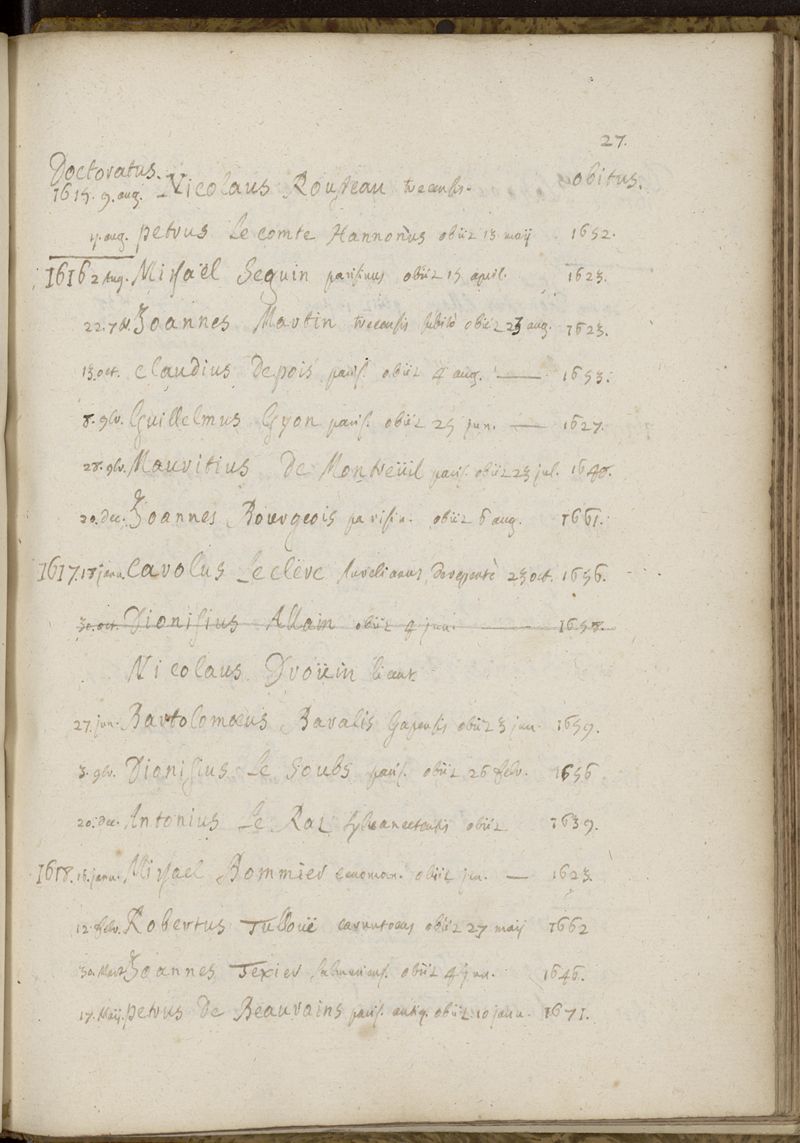 27.
Doctoratus. obitus.
1615. 9. aug. Nicolaus Rousseau trecensis.
aug. petrus Le comte Hannonius obiit 13 maij 1652.
1616 2 Aug. Michaël Seguin parisinus obiit 15 april. 1623.
22. 7br. Joannes Martin trecensis subitò obiit 23 aug. 1623.
13. oct. Claudius Depois paris. obiit 4 aug. — 1653.
8. 9br. Guillelmus Gyon paris. obiit 25 jun. — 1627.
28. 9br. Mauritius De Montreüil paris. obiit 23 jul. 1648.
20. Dec. Joannes Bourgeois parisin. obiit 6 aug. 1661.
1617. 18 janu. Carolus Leclerc Aurelianus, derepentè 23 oct. 1656.
30. oct. Dionisius Allain obiit 4 jun. — 1658.
Nicolaus Droüin licent.
27. jun. Bartolomæus Baralis Gapensis obiit 3 jan. 1659.
3. 9br. Dionisius Le Soubs paris. obiit 26 febr. 1656
20. Dec. Antonius Le Rat sylvanectensis obiit 1639.
1618. 15. janu. Michael Bommier cenoman. obiit jun. — 1623.
12. febr. Robertus Tulloüe carnutaeus obiit 27 maij 1662
30. Mart. Joannes Texier obiit 4 jun. 1646.
17. Maij. petrus De Beauvains paris. antiq. obiit 10 janu. 1671.